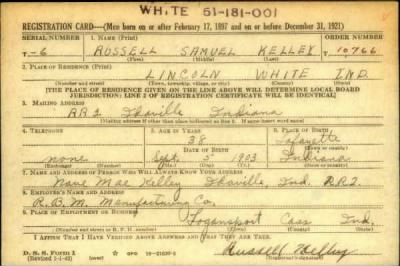 WHITE 51-181-001
REGISTRATION CARD—(Men born on or after February 17, 1897 and on or before December 31, 1921)
SERIAL NUMBER 1. NAME (Print) ORDER NUMBER
T -6 RUSSELL SAMUEL KELLEY T 10766
(First) (Middle) (Last)
2. PLACE OF RESIDENCE (Print)
LINCOLN WHITE IND.
(Number and street) (Town, township, village, or city) (County) (State)
[THE PLACE OF RESIDENCE GIVEN ON THE LINE ABOVE WILL DETERMINE LOCAL BOARD
JURISDICTION; LINE 2 OF REGISTRATION CERTIFICATE WILL BE IDENTICAL]
3. MAILING ADDRESS
RR2 Idaville Indiana
[Mailing address if other than place indicated on line 2. If same insert word same]
4. TELEPHONE 5. AGE IN YEARS 6. PLACE OF BIRTH
38 Lafayette
DATE OF BIRTH (Town or county)
none Sept. 5 1903 Indiana
(Exchange) (Number) (Mo.) (Day) (Yr.) (State or country)
7. NAME AND ADDRESS OF PERSON WHO WILL ALWAYS KNOW YOUR ADDRESS
Mae Kelley Idaville, Ind. RR2.
8. EMPLOYER'S NAME AND ADDRESS
R.B.M. Manufacturing Co.
9. PLACE OF EMPLOYMENT OR BUSINESS
Logansport Cass Ind.
(Number and street or R. F. D. number) (Town) (County) (State)
I AFFIRM THAT I HAVE VERIFIED ABOVE ANSWERS AND THAT THEY ARE TRUE.
D. S. S. Form 1 GPO 16—21630-2 Russell Kelley
(Revised 1-1-42) (over)